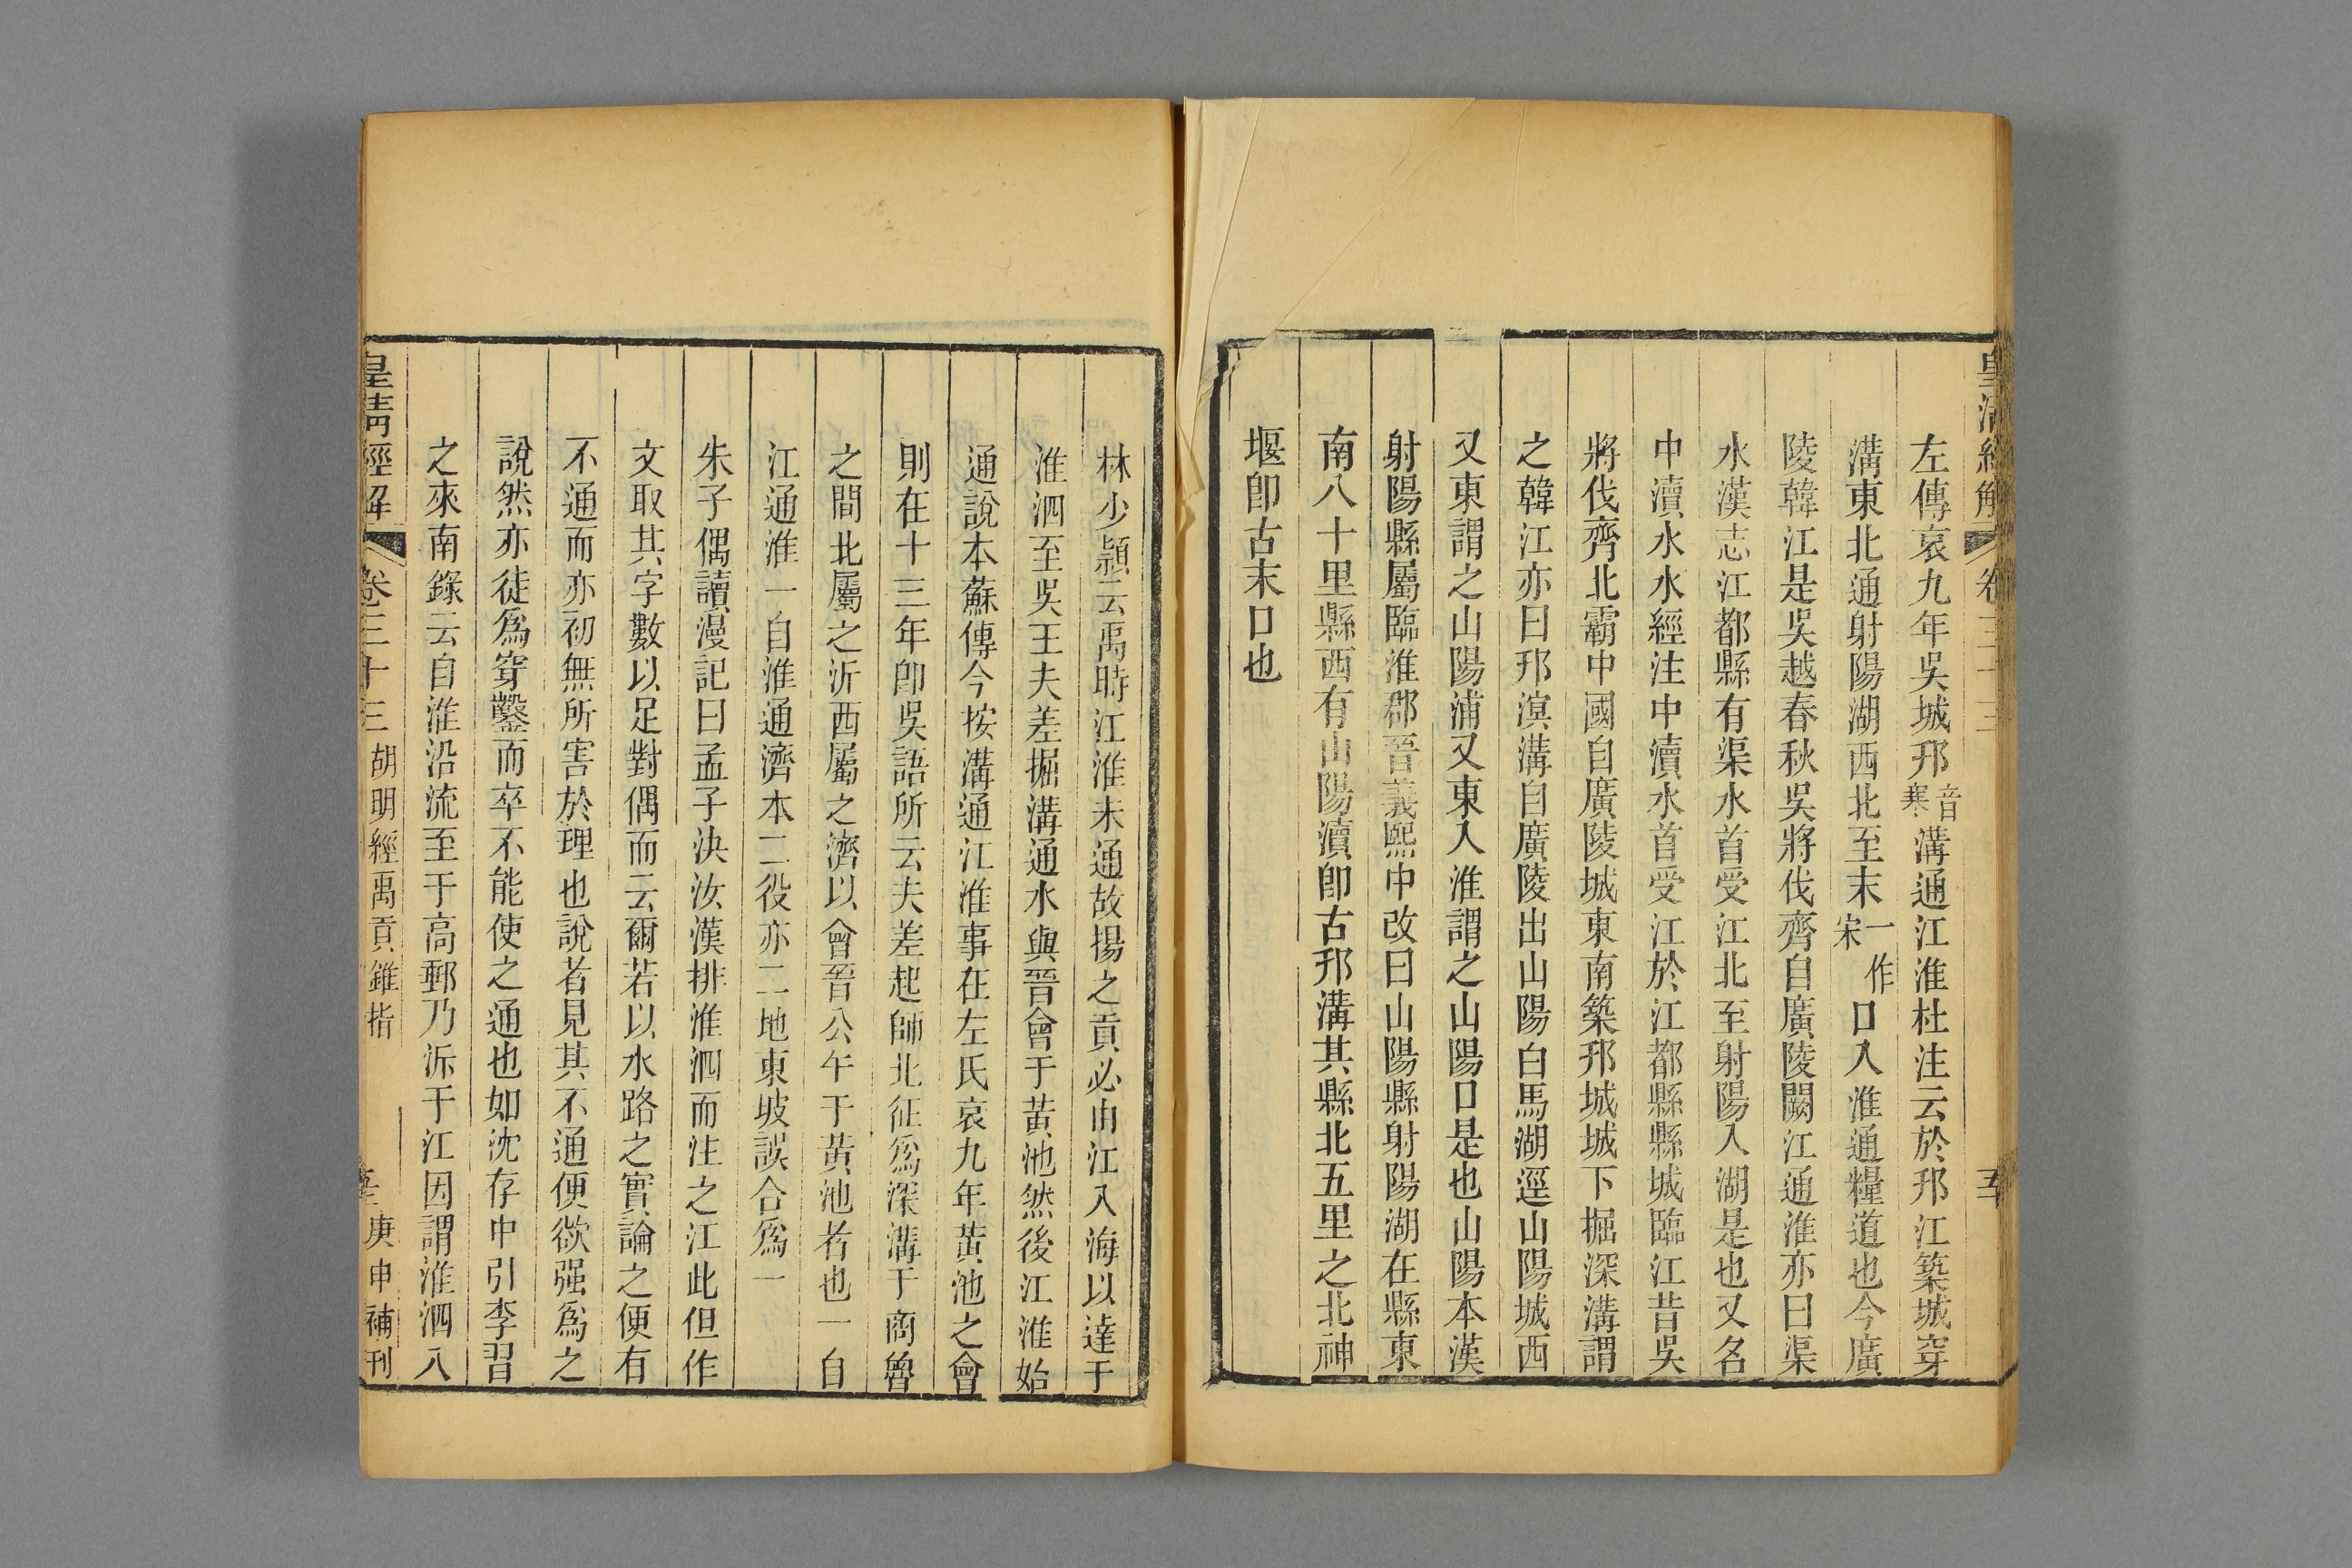 皇清經解 卷三十三
左傳哀九年吳城邗音寒溝通江淮杜注云於邗江築城穿
溝東北通射陽湖西北至末一作宋口入淮通糧道也今廣
陵韓江是吳越春秋吳將伐齊自廣陵闕江通淮亦曰渠
水漢志江都縣有渠水首受江北至射陽入湖是也又名
中瀆水水經注中瀆水首受江於江都縣縣城臨江昔吳
將伐齊北霸中國自廣陵城東南築邗城城下掘深溝謂
之韓江亦曰邗溟溝自廣陵出山陽白馬湖逕山陽城西
又東謂之山陽浦又東入淮謂之山陽口是也山陽本漢
射陽縣屬臨淮郡晉義熙中改曰山陽縣射陽湖在縣東
南八十里縣西有山陽瀆卽古邗溝其縣北五里之北神
堰卽古末口也
林少穎云禹時江淮未通故揚之貢必由江入海以達于
淮泗至吳王夫差掘溝通水與晉會于黃池然後江淮始
通說本蘇傳今按溝通江淮事在左氏哀九年黃池之會
則在十三年卽吳語所云夫差起師北征爲深溝于商魯
之間北屬之沂西屬之濟以會晉公午于黃池者也一自
江通淮一自淮通濟本二役亦二地東坡誤合爲一
朱子偶讀漫記曰孟子決汝漢排淮泗而注之江此但作
文取其字數以足對偶而云爾若以水路之實論之便有
不通而亦初無所害於理也說者見其不通便欲强爲之
說然亦徒爲穿鑿而卒不能使之通也如沈存中引李習
之來南錄云自淮沿流至于高郵乃泝于江因謂淮泗入
皇清經解 卷三十三 胡明經禹貢錐指 庚申補刊